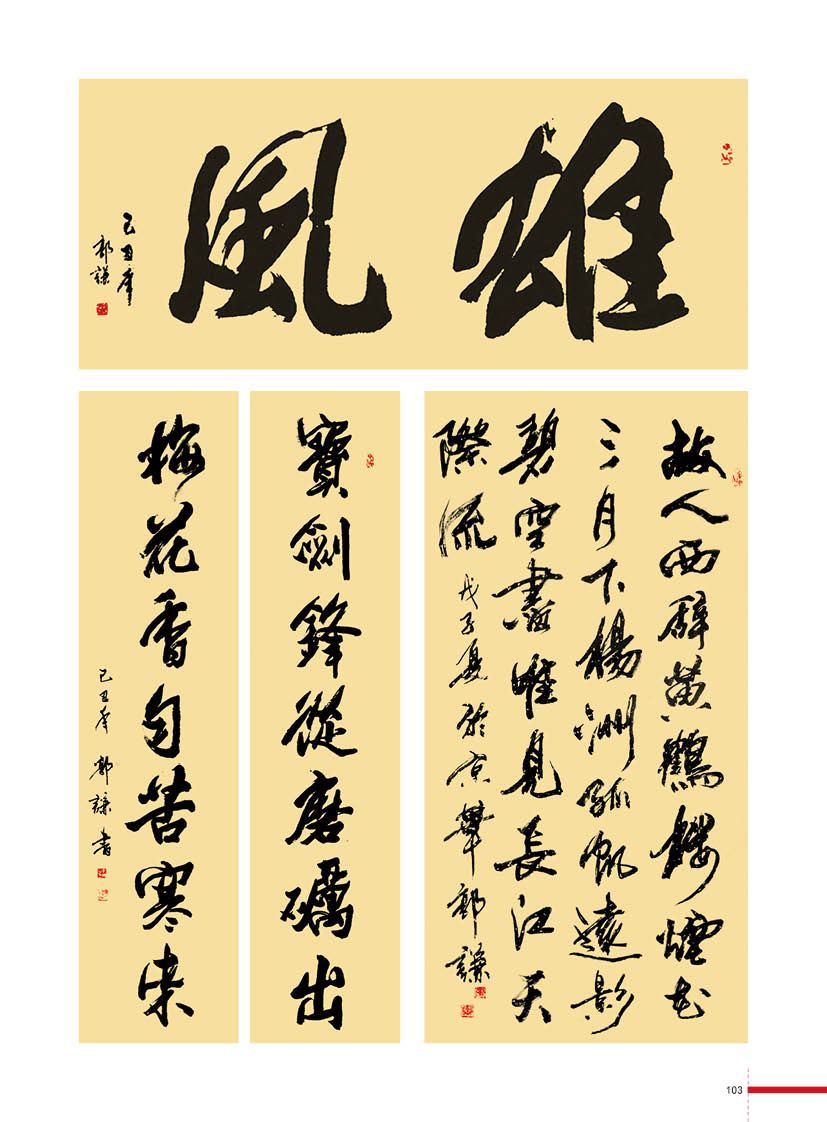 雄風
己丑年
郭謙
故人西辭黄鶴樓煙花
三月下楊洲孤帆遠影
碧空盡唯見長江天
際流
戊子夏於京華郭謙
寶劍鋒從磨礪出
梅花香自苦寒来
己丑年 郭謙書
103